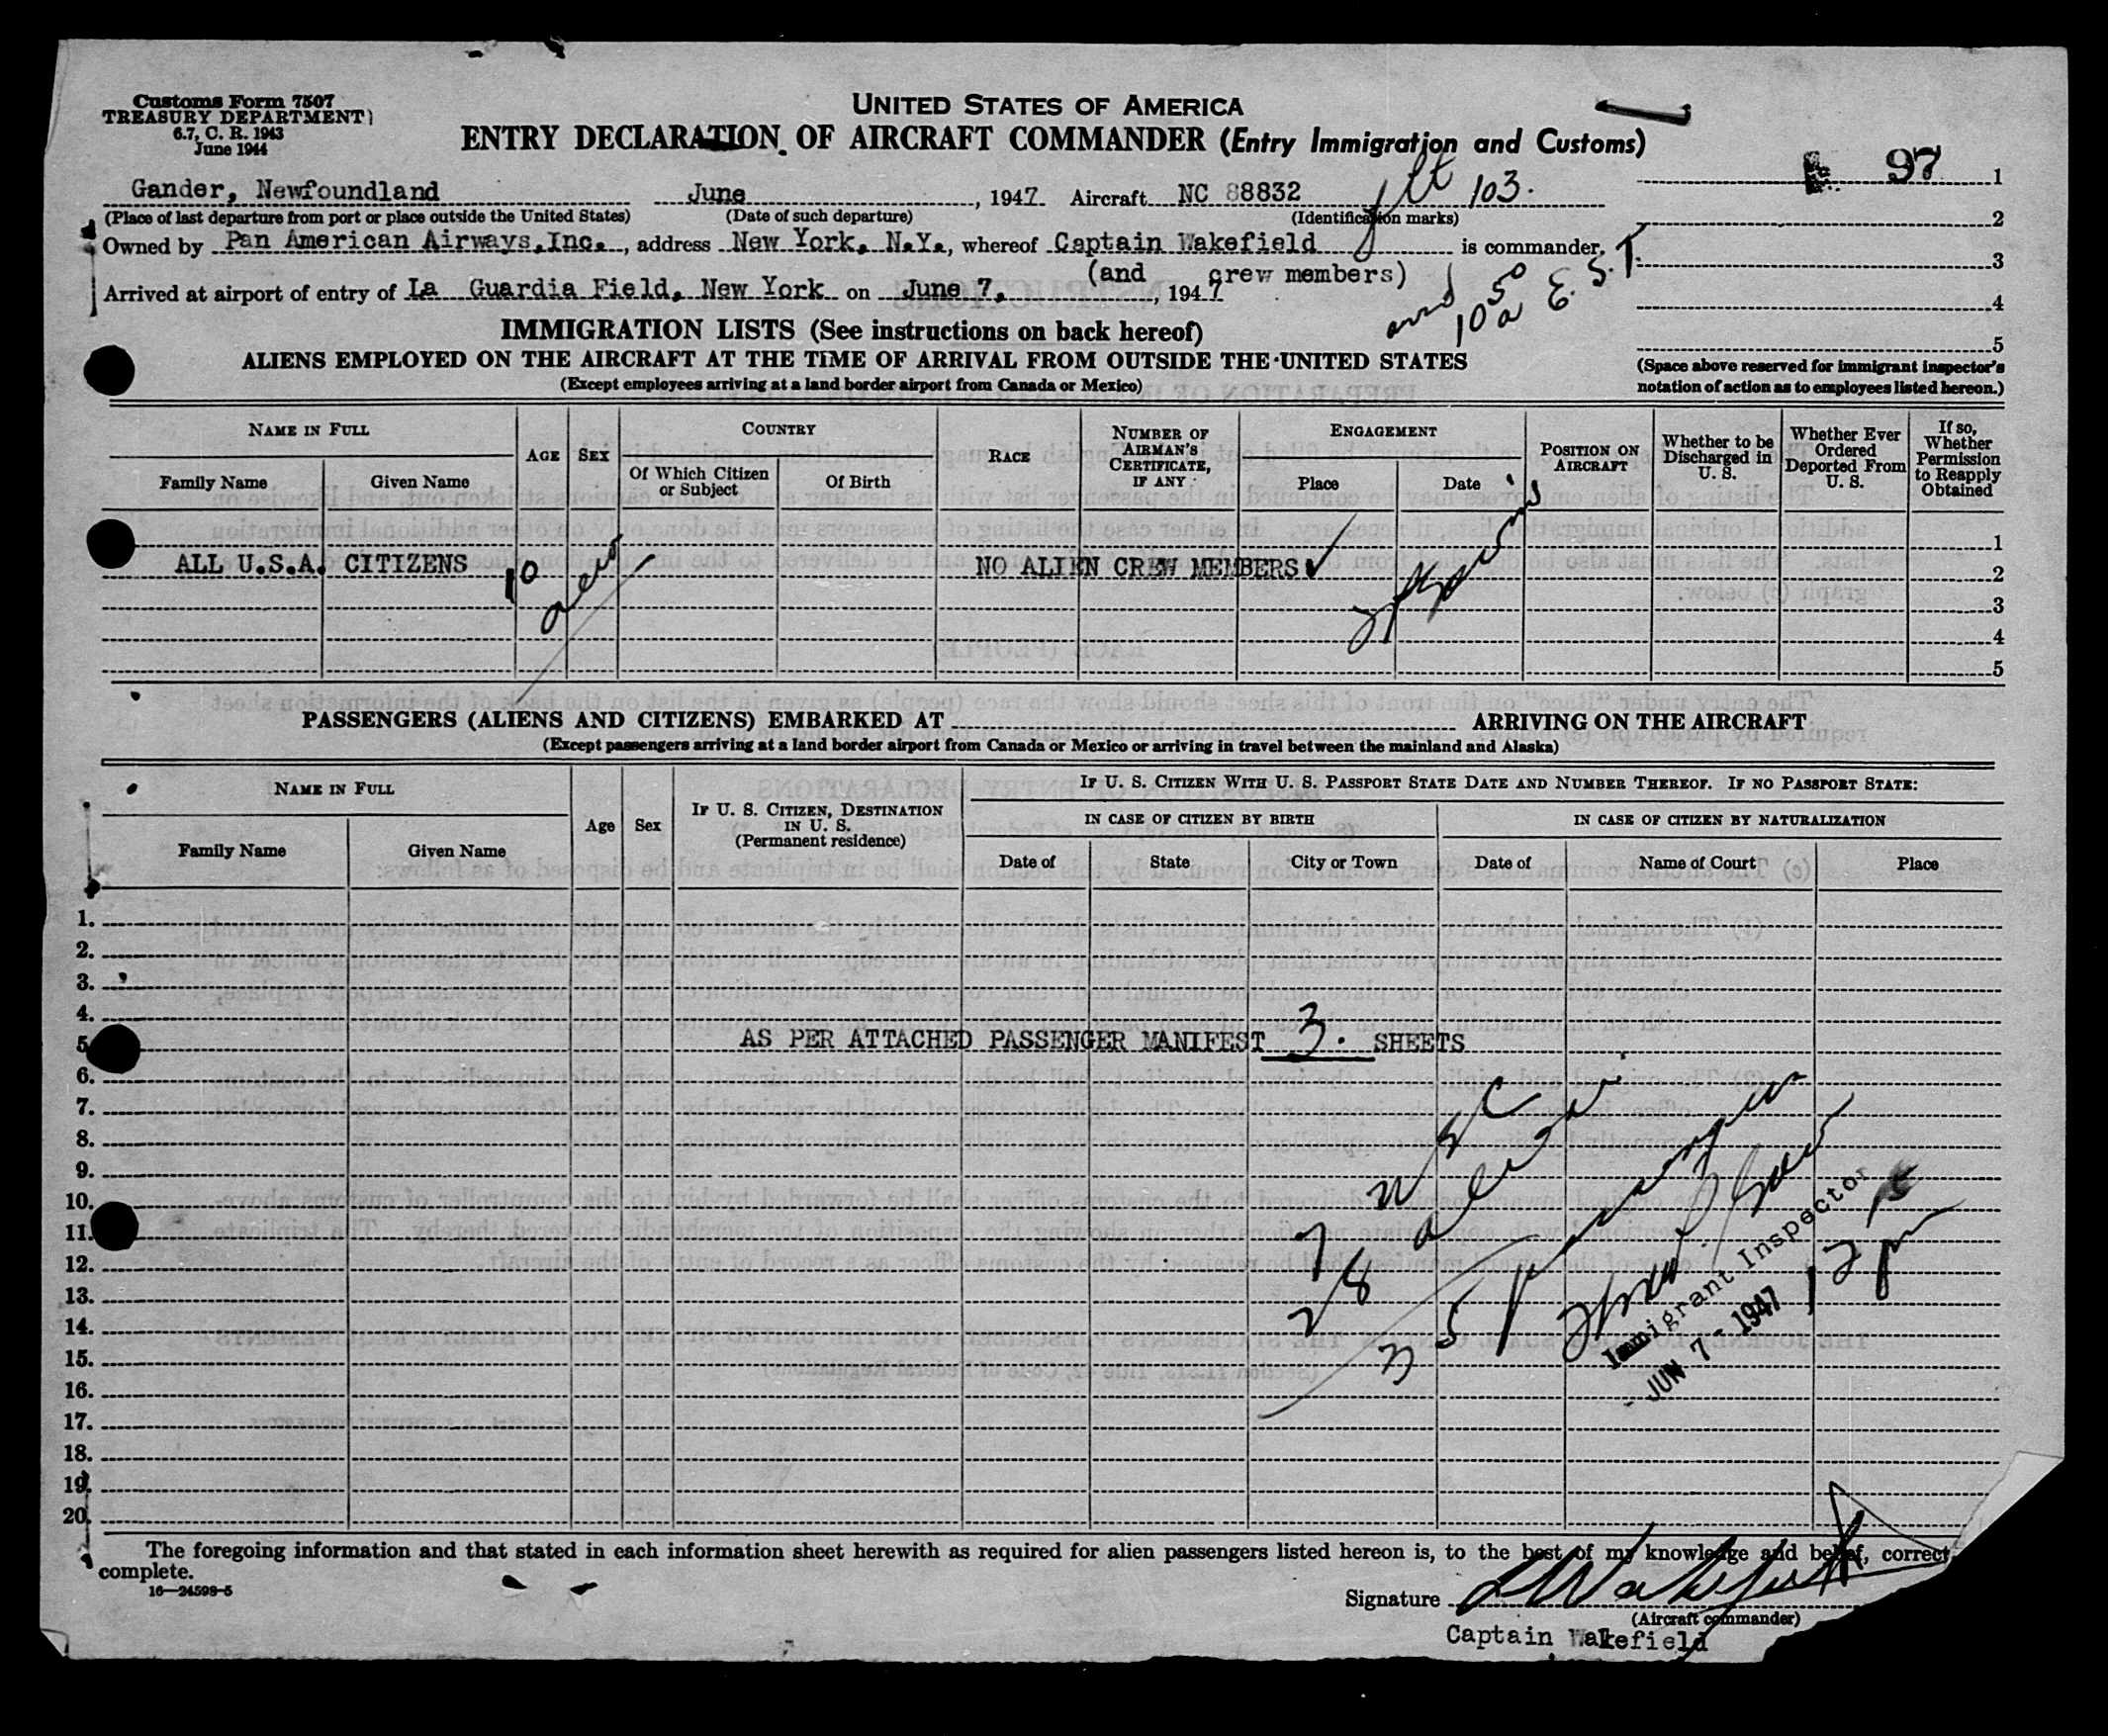 Customs Form 7507
TREASURY DEPARTMENT
6.7, C. R. 1943
June 1944
UNITED STATES OF AMERICA
ENTRY DECLARATION OF AIRCRAFT COMMANDER (Entry Immigration and Customs)
97 1
Gander, Newfoundland June , 1947 Aircraft NC 88832 flt 103.
(Place of last departure from port or place outside the United States) (Date of such departure) (Identification marks)
2
Owned by Pan American Airways, Inc., address New York, N.Y., whereof Captain Wakefield is commander,
3
(and crew members)
Arrived at airport of entry of La Guardia Field, New York on June 7, , 1947
arrd 10 50 a E. S. T.
4
5
IMMIGRATION LISTS (See instructions on back hereof)
ALIENS EMPLOYED ON THE AIRCRAFT AT THE TIME OF ARRIVAL FROM OUTSIDE THE UNITED STATES
(Except employees arriving at a land border airport from Canada or Mexico)
(Space above reserved for immigrant inspector's
notation of action as to employees listed hereon.)
NAME IN FULL
Family Name Given Name
AGE
SEX
COUNTRY
Of Which Citizen or Subject
Of Birth
RACE
NUMBER OF AIRMAN'S CERTIFICATE, IF ANY
ENGAGEMENT
Place Date
POSITION ON AIRCRAFT
Whether to be Discharged in U. S.
Whether Ever Ordered Deported From U. S.
If so, Whether Permission to Reapply Obtained
1
ALL U.S.A. CITIZENS 10 NO ALIEN CREW MEMBERS 2
3
4
5
PASSENGERS (ALIENS AND CITIZENS) EMBARKED AT ARRIVING ON THE AIRCRAFT
(Except passengers arriving at a land border airport from Canada or Mexico or arriving in travel between the mainland and Alaska)
NAME IN FULL
Family Name Given Name
Age
Sex
IF U. S. CITIZEN, DESTINATION IN U. S.
(Permanent residence)
IF U. S. CITIZEN WITH U. S. PASSPORT STATE DATE AND NUMBER THEREOF. IF NO PASSPORT STATE:
IN CASE OF CITIZEN BY BIRTH
Date of State City or Town
IN CASE OF CITIZEN BY NATURALIZATION
Date of Name of Court Place
1.
2.
3.
4.
5. AS PER ATTACHED PASSENGER MANIFEST 3. SHEETS
6.
7.
8.
9.
10.
11.
12.
13.
14.
15.
16.
17.
18.
19.
20.
7 USC
28 aliens
35 passengers
Immigrant Inspector
JUN 7 - 1947
12 p
The foregoing information and that stated in each information sheet herewith as required for alien passengers listed hereon is, to the best of my knowledge and belief, correct
complete.
16—24598-5
Signature Wakefield
(Aircraft commander)
Captain Wakefield